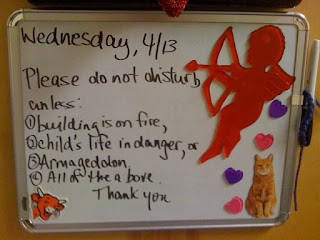 Wednesday, 4/13
Please do not disturb
unless:
① building is on fire,
② child's life in danger, or
③ Armagedon
④ All of the above.
Thank you